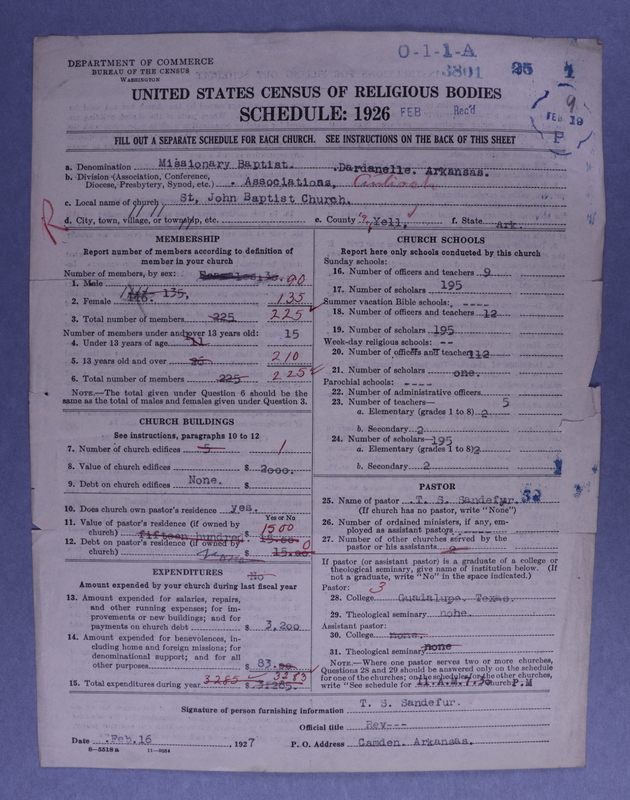 DEPARTMENT OF COMMERCE
BUREAU OF THE CENSUS
WASHINGTON
O-1-1-A
3801
25 1
UNITED STATES CENSUS OF RELIGIOUS BODIES
SCHEDULE: 1926
FEB Rec'd
9
FEB 19
P
FILL OUT A SEPARATE SCHEDULE FOR EACH CHURCH. SEE INSTRUCTIONS ON THE BACK OF THIS SHEET
a. Denomination Missionary Baptist. Dardanelle. Arkansas.
b. Division (Association, Conference,
Diocese, Presbytery, Synod, etc.) Associations, Antioch
c. Local name of church St, John Baptist Church.
R
d. City, town, village, or township, etc. e. County Yell, f. State Ark.
MEMBERSHIP
Report number of members according to definition of
member in your church
Number of members, by sex:
1. Male 90
2. Female 135. 135
3. Total number of members 225 225
Number of members under and over 13 years old: 15
4. Under 13 years of age
5. 13 years old and over 210
6. Total number of members 225 225
NOTE.—The total given under Question 6 should be
the same as the total of males and females given under Question 3.
CHURCH BUILDINGS
See instructions, paragraphs 10 to 12
7. Number of church edifices 5 1
8. Value of church edifices $ 2000.
9. Debt on church edifices None. $
10. Does church own pastor's residence yes.
Yes or No
11. Value of pastor's residence (if owned by
church) fifteen hundred $ 15.00 1500
12. Debt on pastor's residence (if owned by
church) None $ 15.00 0
EXPENDITURES No
Amount expended by your church during last fiscal year
13. Amount expended for salaries, repairs,
and other running expenses; for im-
provements or new buildings; and for
payments on church debt $ 3,200
14. Amount expended for benevolences, in-
cluding home and foreign missions; for
denominational support; and for all
other purposes $ 83.00
15. Total expenditures during year 3285 $ 3.285. 3283
CHURCH SCHOOLS
Report here only schools conducted by this church
Sunday schools:
16. Number of officers and teachers 9
17. Number of scholars 195
Summer vacation Bible schools: ----
18. Number of officers and teachers 12
19. Number of scholars 195
Week-day religious schools: --
20. Number of officers and teachers 112
21. Number of scholars one.
Parochial schools: ----
22. Number of administrative officers
23. Number of teachers— 5
a. Elementary (grades 1 to 8) 2
b. Secondary 2
24. Number of scholars— 195
a. Elementary (grades 1 to 8) 2
b. Secondary 2
PASTOR
25. Name of pastor T. S. Sandefur.
(If church has no pastor, write "None")
26. Number of ordained ministers, if any, em-
ployed as assistant pastors
27. Number of other churches served by the
pastor or his assistants 2
If pastor (or assistant pastor) is a graduate of a college or
theological seminary, give name of institution below. (If
not a graduate, write "No" in the space indicated.)
Pastor: 3
28. College Guadalupe. Texas.
29. Theological seminary none.
Assistant pastor:
30. College none.
31. Theological seminary none
NOTE.—Where one pastor serves two or more churches,
Questions 28 and 29 should be answered only on the schedule
for one of the churches; on the schedules for the other churches,
write "See schedule for 11.A.M.7.30 church" P.M
Signature of person furnishing information T. S. Sandefur.
Official title Rev---
Date Feb.16, 1927 P. O. Address Camden. Arkansas.
8-5518 a 11-9584